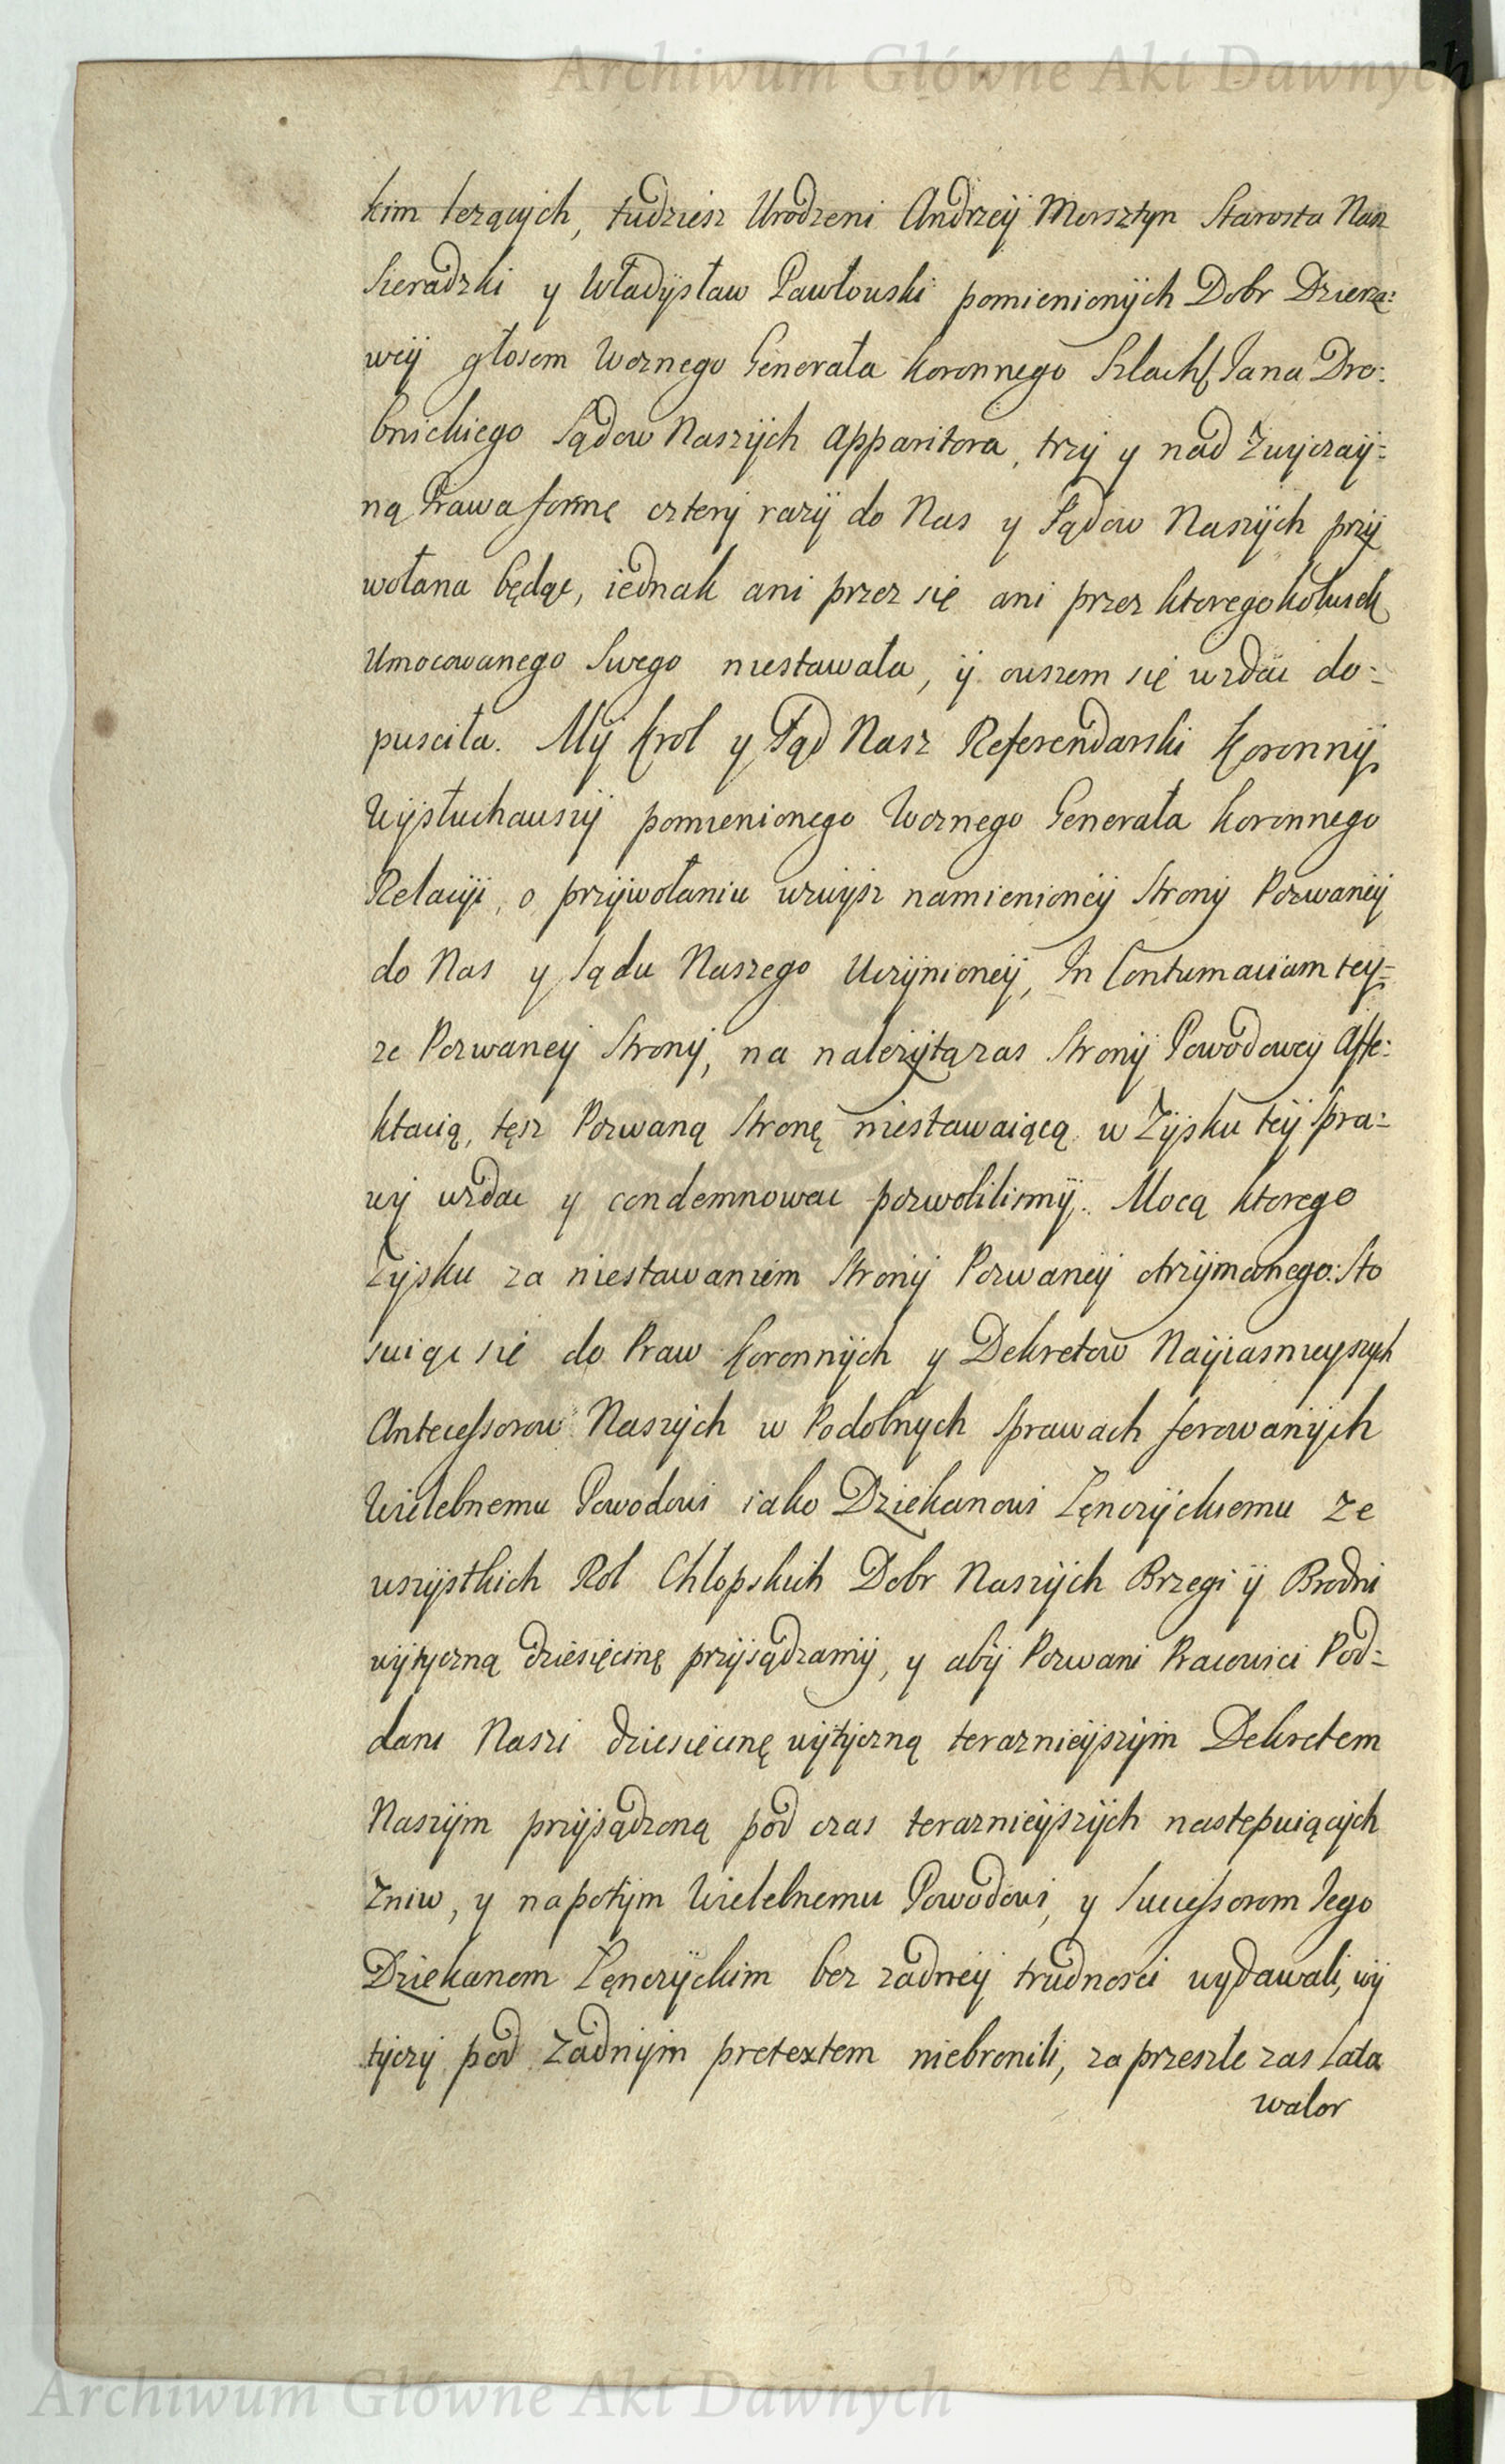 Archiwum Główne Akt Dawnych
kim lezących, tudziesz Urodzeni Andrzeÿ Morsztyn Starosta Nasz
Sieradzki y Władysław Pawłowski pomienionÿch Dobr Dzierza:
wcÿ głosem Woznego Generała Koronnego Szlacht Jana Dro:
bnickiego Sądow Naszÿch Apparitora, trzÿ y nad Zwÿczaÿ=
ną Prawa formę czterÿ razÿ do Nas y Sądow Naszÿch przÿ
wołana będąc, iednak ani przez się ani przez ktoregokolwiek
Umocowanego Swego niestawała, ÿ owszem się wzdac do=
pusciła. Mÿ Krol y Sąd Nasz Referendarski Koronnÿ
Wÿsłuchawszÿ pomienionego Woznego Generała Koronnego
Relacÿi, o przÿwołaniu wzwÿsz namienioneÿ Stronÿ Pozwaneÿ
do Nas y Sądu Naszego Uczÿnioneÿ, In Contumaciam teÿ=
ze Pozwaneÿ Stronÿ, na nalezÿtą zas Stronÿ Powodoweÿ Affe:
ktacią, tęsz Pozwaną Stronę niestawaiącą w Zÿsku teÿ Spra=
wÿ wzdac y condemnowac pozwolilismÿ. Mocą ktorego
Zÿsku za niestawaniem Stronÿ Pozwaneÿ otrzÿmanego: Sto
suiąc się do Praw Koronnÿch y Dekretow Naÿiasnieyszych
Antecessorow Naszÿch w Podobnych Sprawach ferowanÿch
Wielebnemu Powodowi iako Dziekanowi Łęnczÿckiemu ze
wszÿstkich Rol Chłopskich Dobr Naszÿch Brzegi ÿ Brodni
wÿtÿczną dziesięcinę przÿsądzamÿ, y abÿ Pozwani Pracowici Pod=
dani Naszi dziesięcinę wÿtÿczną terazniejszÿm Dekretem
Naszÿm przÿsądzoną pod czas terazniejszÿch następuiącÿch
Zniw, y napotÿm Wielebnemu Powodowi, y Successorom Jego
Dziekanom Łęnczÿckim bez zadneÿ trudnosci wÿdawali, wÿ
tÿczÿ pod Zadnÿm pretextem niebronili, za przeszłe zas Lata
walor
Archiwum Główne Akt Dawnych